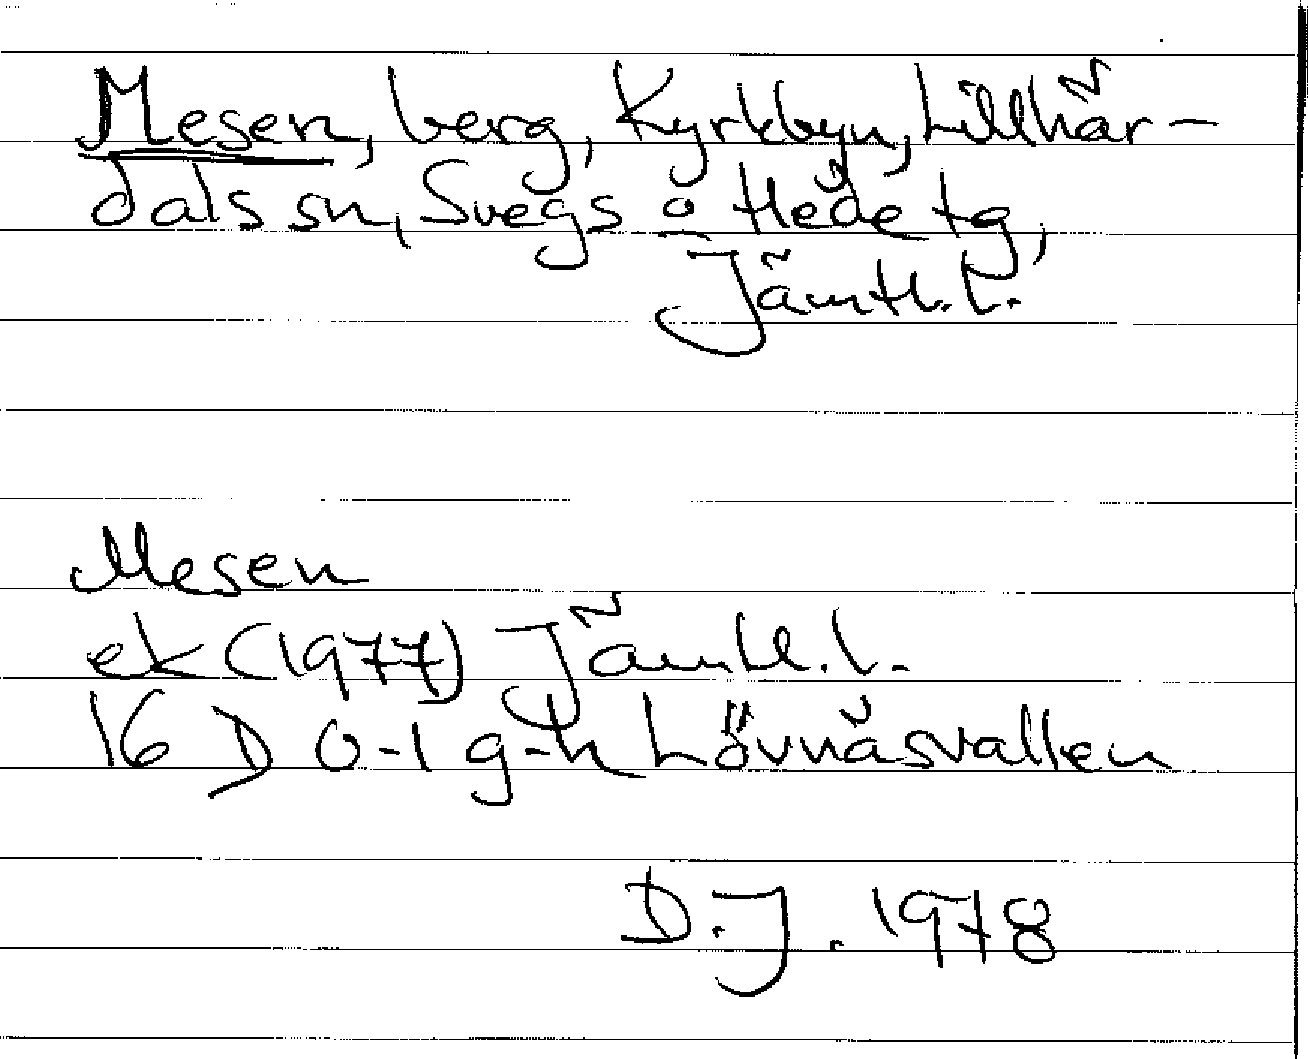 Mesen, berg, Kyrkbyn, Lillhär-
dals sn, Svegs o Hede tg,
Jämtl. l.
Mesen
ek (1977) Jämtl. l.
16 D 0-1 g-h Lövnäsvallen
D. J. 1978